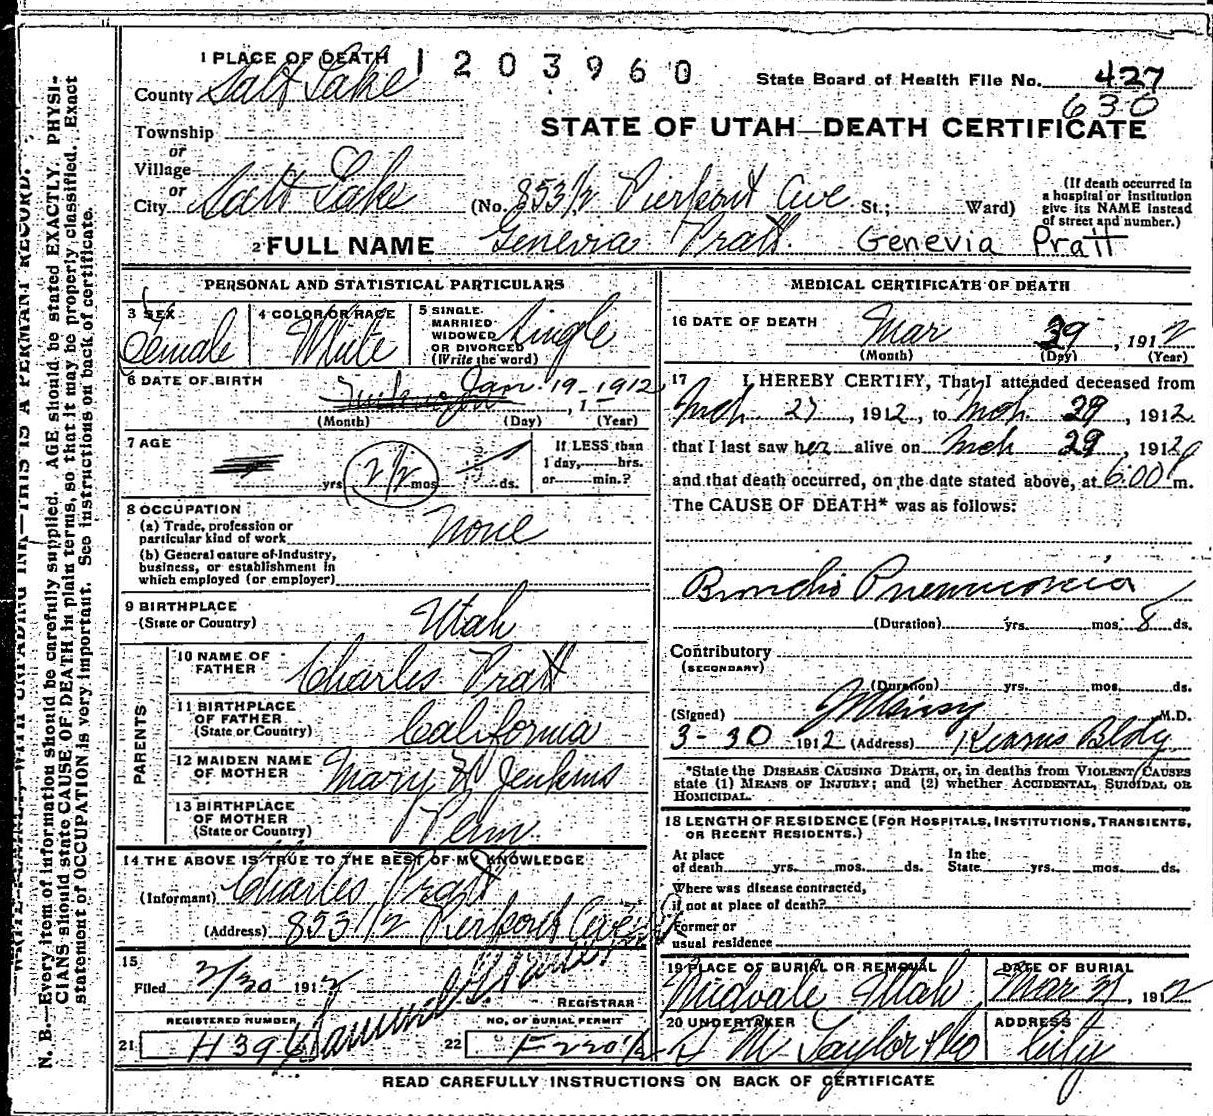 1 PLACE OF DEATH 1203960
State Board of Health File No. 427
630
County Salt Lake
STATE OF UTAH—DEATH CERTIFICATE
Township
or
Village
or
City Salt Lake (No. 853 1/2 Pierpont Ave St.; Ward)
(If death occurred in a hospital or institution give its NAME instead of street and number.)
2 FULL NAME Genevia Pratt. Genevia Pratt
PERSONAL AND STATISTICAL PARTICULARS
3 SEX Female
4 COLOR OR RACE White
5 SINGLE MARRIED WIDOWED OR DIVORCED (Write the word) Single
6 DATE OF BIRTH Jan. 19 - 1912
(Month) (Day) , 1 (Year)
7 AGE
yrs 2 1/2 mos ds.
If LESS than
1 day, hrs.
or min.?
8 OCCUPATION
(a) Trade, profession or
particular kind of work None
(b) General nature of Industry,
business, or establishment in
which employed (or employer)
9 BIRTHPLACE
(State or Country) Utah
PARENTS
10 NAME OF
FATHER Charles Pratt
11 BIRTHPLACE
OF FATHER
(State or Country) California
12 MAIDEN NAME
OF MOTHER Mary Jenkins
13 BIRTHPLACE
OF MOTHER
(State or Country)
14 THE ABOVE IS TRUE TO THE BEST OF MY KNOWLEDGE
(Informant) Charles Pratt
(Address) 853 1/2 Pierpont Ave
15
Filed 3/30 1912
REGISTRAR
REGISTERED NUMBER
21 H 396
NO. OF BURIAL PERMIT
22
MEDICAL CERTIFICATE OF DEATH
16 DATE OF DEATH Mar 29, 1912
(Month) (Day) (Year)
17 I HEREBY CERTIFY, That I attended deceased from
Mch 27, 1912, to Mch 29, 1912
that I last saw her alive on Mch 29, 1912
and that death occurred, on the date stated above, at 6:00 P m.
The CAUSE OF DEATH* was as follows:
Broncho Pneumonia
(Duration) yrs. mos. 8 ds.
Contributory
(SECONDARY)
(Duration) yrs. mos. ds.
(Signed) M.D.
3-30 1912 (Address) Kearns Bldg
*State the DISEASE CAUSING DEATH, or, in deaths from VIOLENT CAUSES
state (1) MEANS OF INJURY; and (2) whether ACCIDENTAL, SUICIDAL OR
HOMICIDAL.
18 LENGTH OF RESIDENCE (FOR HOSPITALS, INSTITUTIONS, TRANSIENTS,
OR RECENT RESIDENTS.)
At place
of death yrs. mos. ds.
In the
State yrs. mos. ds.
Where was disease contracted,
if not at place of death?
Former or
usual residence
19 PLACE OF BURIAL OR REMOVAL
Midvale Utah
DATE OF BURIAL
Mar 31, 1912
20 UNDERTAKER
Taylor & Co
ADDRESS
City
READ CAREFULLY INSTRUCTIONS ON BACK OF CERTIFICATE
N. B.—Every item of information should be carefully supplied. AGE should be stated EXACTLY. PHYSI-
CIANS should state CAUSE OF DEATH in plain terms, so that it may be properly classified. Exact
statement of OCCUPATION is very important. See instructions on back of certificate.
THIS IS A PERMANENT RECORD.